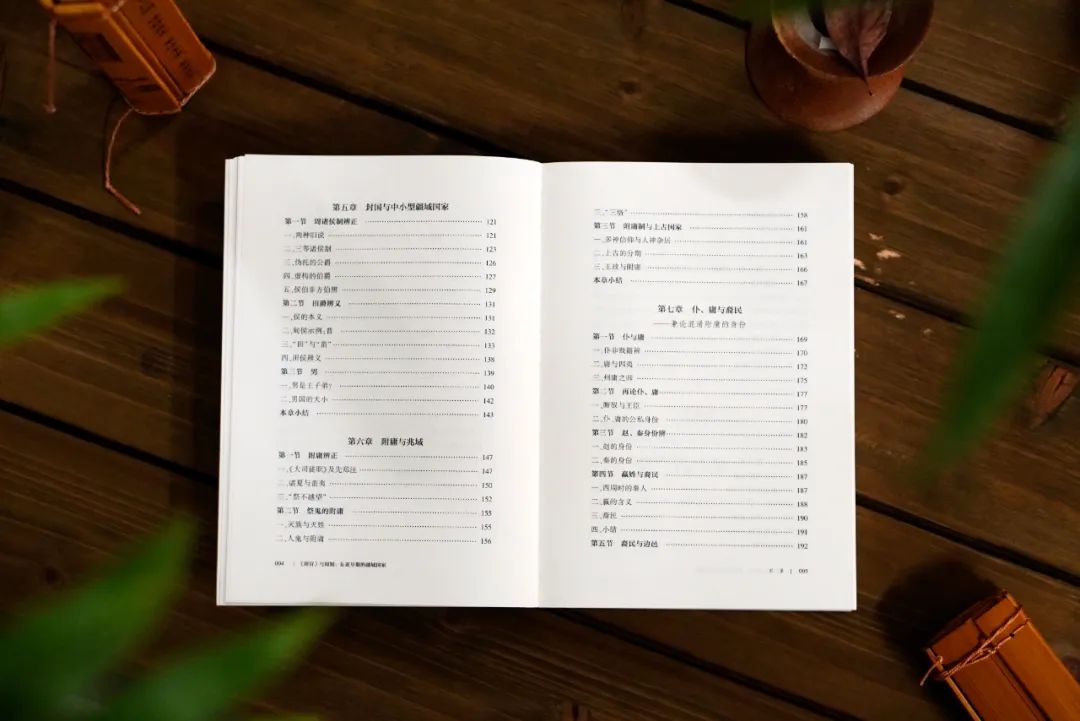 第五章 封国与中小型疆域国家
第一节 周诸侯制辨正 121
一、两种旧说 121
二、三等诸侯制 123
三、伪托的公爵 126
四、虚构的伯爵 127
五、侯伯非方伯辨 129
第二节 田爵辨义 131
一、侯的本义 131
二、甸侯示例:晋 132
三、“田”与“甸” 133
四、田侯辨义 138
第三节 男 139
一、男是王子弟? 140
二、男国的大小 142
本章小结 143
第六章 附庸与兆域
第一节 附庸辨正 147
一、《大司徒职》及先郑注 147
二、诸夏与蛮夷 150
三、“祭不越望” 152
第二节 祭鬼的附庸 155
一、天族与天姓 155
二、人鬼与附庸 156
004 |
三、“三恪” 158
第三节 附庸制与上古国家 161
一、多神信仰与人神杂居 161
二、上古的分期 163
三、王政与附庸 166
本章小结 167
第七章 仆、庸与裔民
——兼论混淆附庸的身份
第一节 仆与庸 169
一、仆非贱籍辨 170
二、庸与四夷 172
三、州庸之师 175
第二节 再论仆、庸 177
一、厮驭与王臣 177
二、仆、庸的公私身份 180
第三节 赵、秦身份辨 182
一、赵的身份 183
二、秦的身份 185
第四节 嬴姓与裔民 187
一、西周时的秦人 187
二、嬴的含义 188
三、裔民 190
四、小结 191
第五节 裔民与边邑 192
目 录 | 005